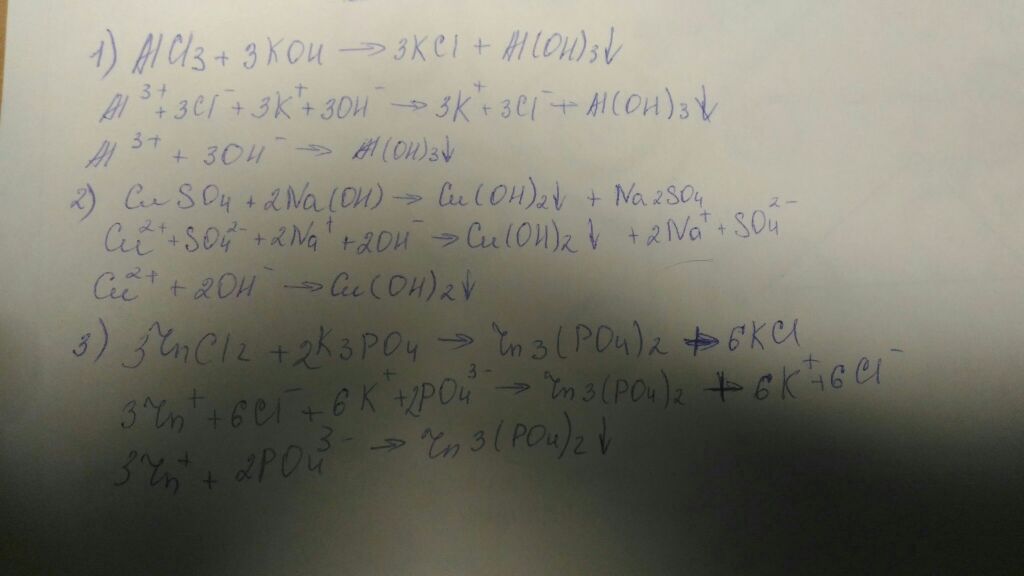 1) AlCl3 + 3KOH → 3KCl + Al(OH)3↓
Al³⁺ + 3Cl⁻ + 3K⁺ + 3OH⁻ → 3K⁺ + 3Cl⁻ + Al(OH)3↓
Al³⁺ + 3OH⁻ → Al(OH)3↓
2) CuSO4 + 2Na(OH) → Cu(OH)2↓ + Na2SO4
Cu²⁺ + SO4²⁻ + 2Na⁺ + 2OH⁻ → Cu(OH)2↓ + 2Na⁺ + SO4²⁻
Cu²⁺ + 2OH⁻ → Cu(OH)2↓
3) 3ZnCl2 + 2K3PO4 → Zn3(PO4)2 + 6KCl
3Zn⁺ + 6Cl⁻ + 6K⁺ + 2PO4³⁻ → Zn3(PO4)2 + 6K⁺ + 6Cl⁻
3Zn⁺ + 2PO4³⁻ → Zn3(PO4)2↓